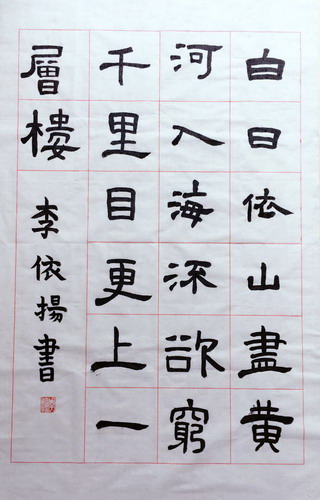 白日依山盡黄
河入海流欲窮
千里目更上一
層樓 李依揚書